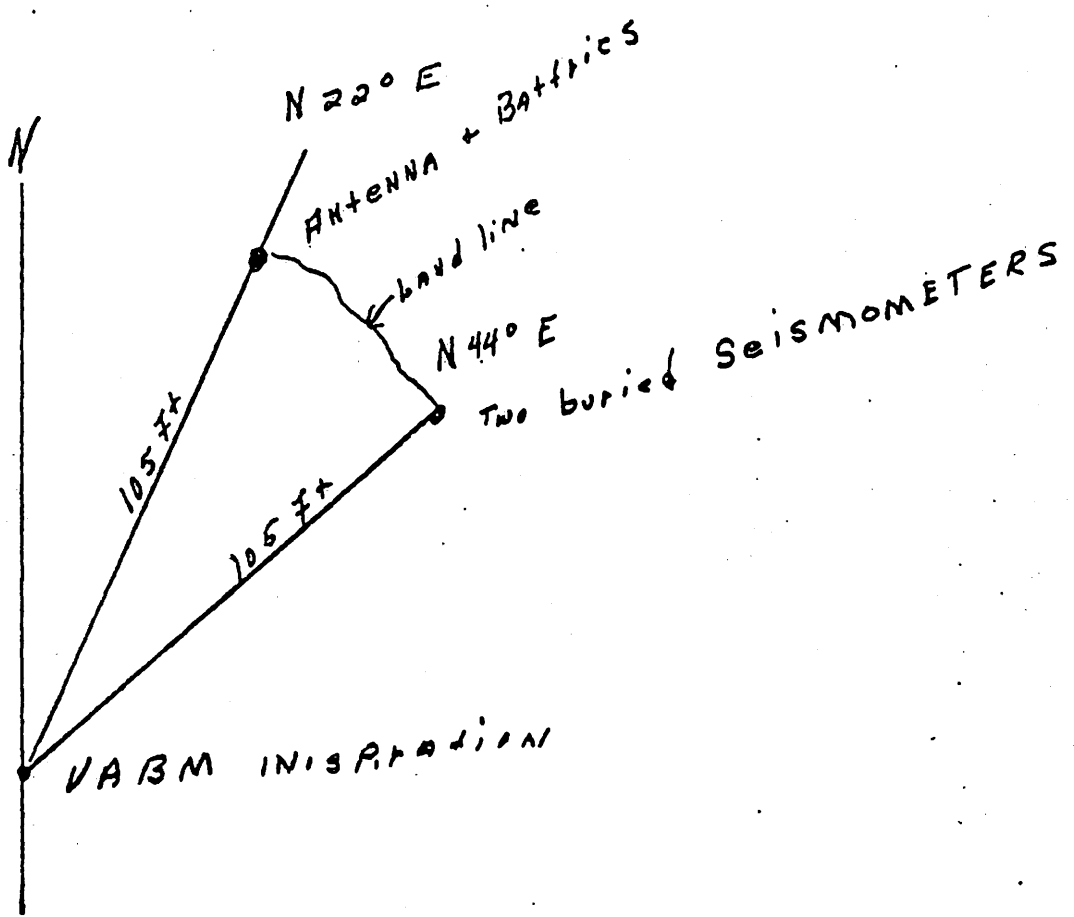 N
N 22° E
ANtENNA + BAttries
LANd liNe
N 44° E
Two buried SeisMOMETERS
105 Ft
105 Ft
VABM INisPiratioN